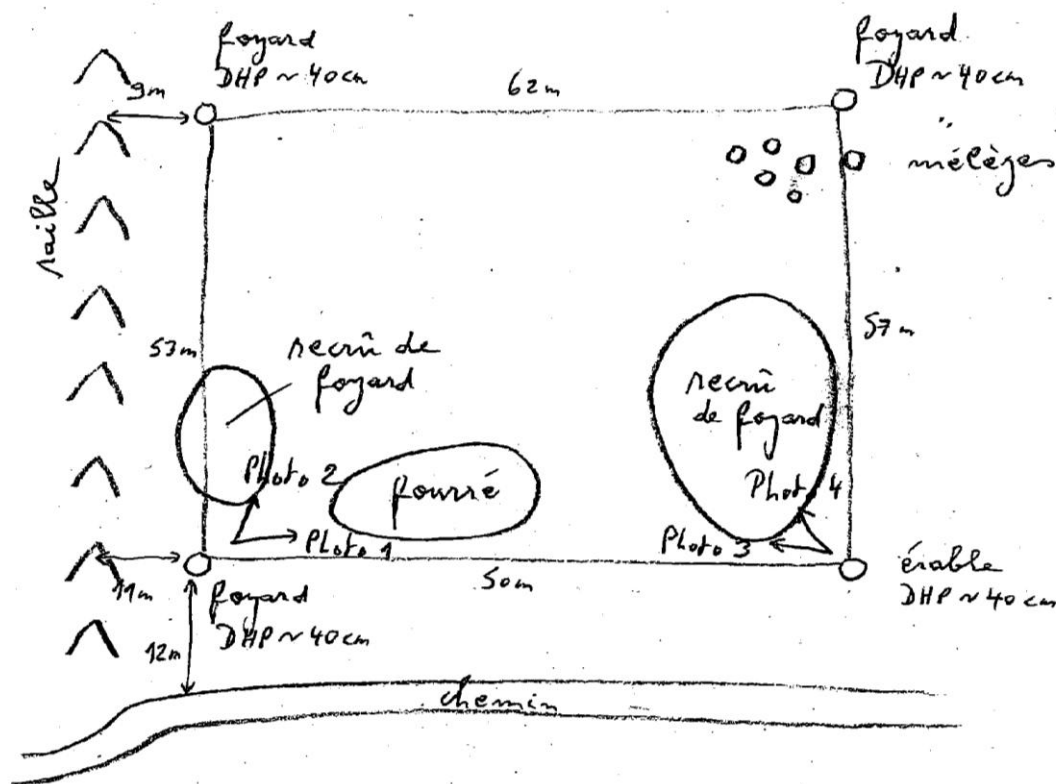 foyard
DHP ~ 40cm
foyard
DHP ~ 40cm
9m
62m
mélèzes
raille
53m
recrû de
foyard
57m
recrû
de foyard
Photo 2
fourré
Photo 4
Photo 1
Photo 3
50m
11m
foyard
DHP ~ 40cm
érable
DHP ~ 40cm
12m
chemin